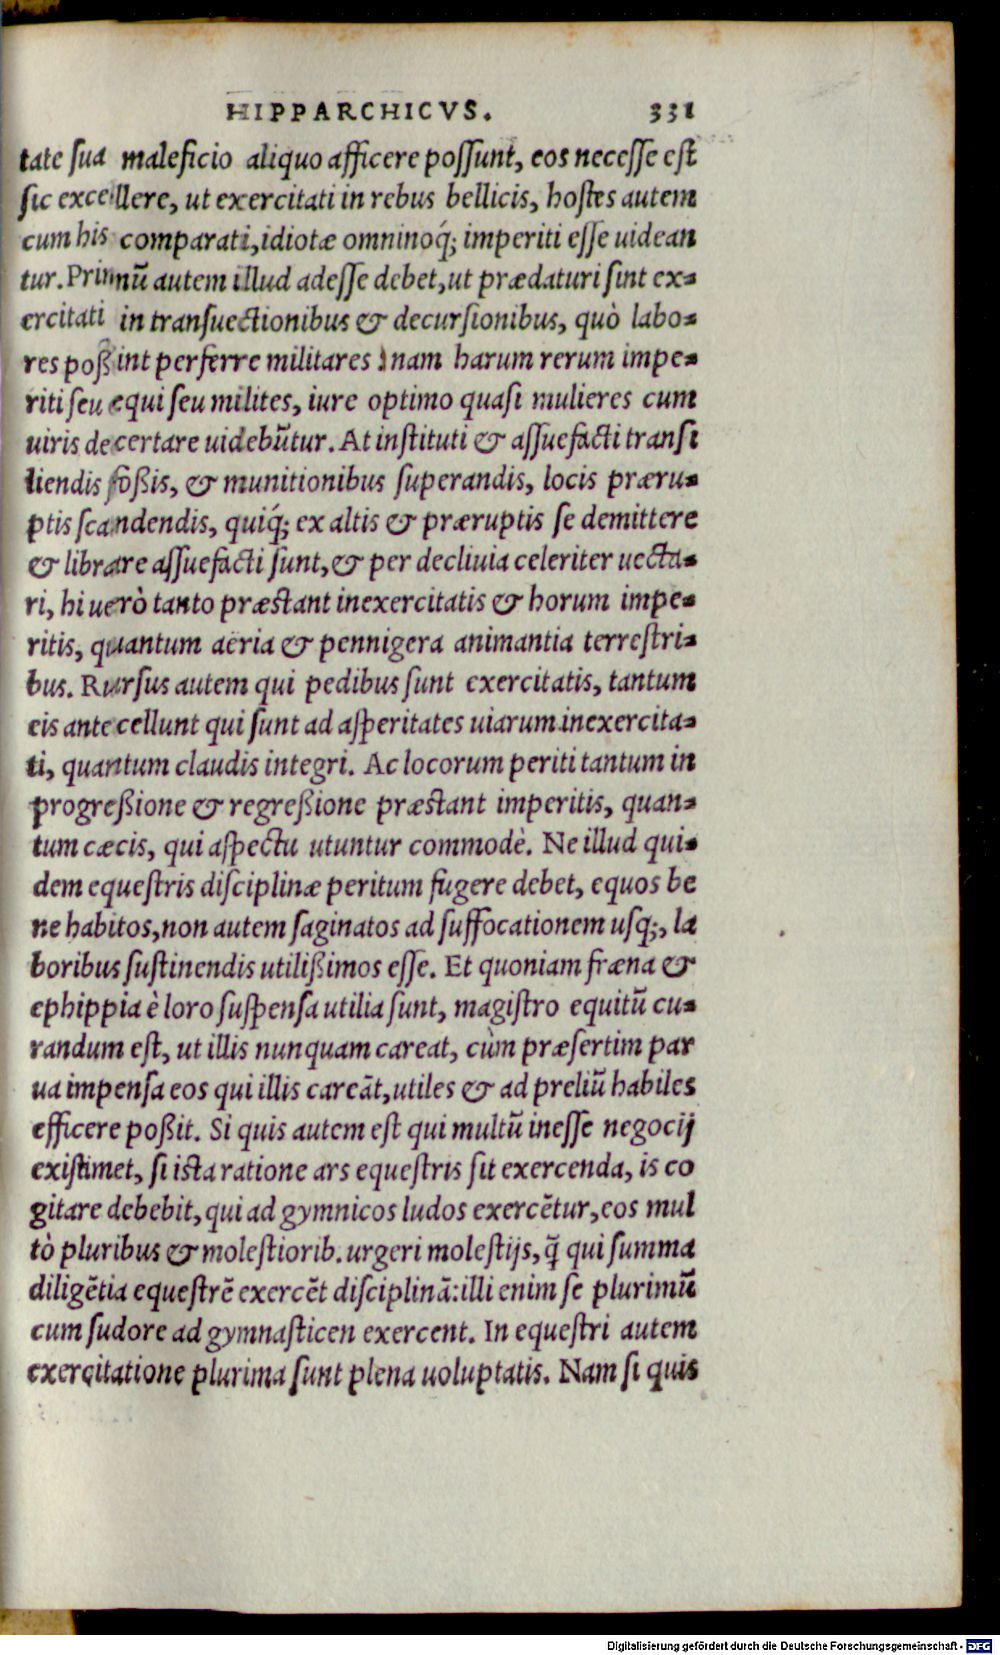 HIPPARCHICVS. 331
tate sua maleficio aliquo afficere possunt, eos necesse est
sic excellere, ut exercitati in rebus bellicis, hostes autem
cum his comparati, idiotæ omninoq́; imperiti esse uidean
tur. Primũ autem illud adesse debet, ut prædaturi sint ex-
ercitati in transuectionibus & decursionibus, quò labo-
res poßint perferre militares: nam harum rerum impe-
riti seu equi seu milites, iure optimo quasi mulieres cum
uiris decertare uidebũtur. At instituti & assuefacti transi
liendis foßis, & munitionibus superandis, locis præru-
ptis scandendis, quiq́; ex altis & præruptis se demittere
& librare assuefacti sunt, & per decliuia celeriter uecta-
ri, hi uerò tanto præstant inexercitatis & horum impe-
ritis, quantum aëria & pennigera animantia terrestri-
bus. Rursus autem qui pedibus sunt exercitatis, tantum
eis antecellunt qui sunt ad asperitates uiarum inexercita-
ti, quantum claudis integri. Ac locorum periti tantum in
progreßione & regreßione præstant imperitis, quan-
tum cæcis, qui aspectu utuntur commodè. Ne illud qui-
dem equestris disciplinæ peritum fugere debet, equos be
ne habitos, non autem saginatos ad suffocationem usq;, la
boribus sustinendis utilißimos esse. Et quoniam fræna &
ephippia è loro suspensa utilia sunt, magistro equitũ cu-
randum est, ut illis nunquam careat, cùm præsertim par
ua impensa eos qui illis careãt, utiles & ad preliũ habiles
efficere poßit. Si quis autem est qui multũ inesse negocij
existimet, si ista ratione ars equestris sit exercenda, is co
gitare debebit, qui ad gymnicos ludos exercẽtur, eos mul
tò pluribus & molestiorib. urgeri molestijs, q̃ qui summa
diligẽtia equestrẽ exercẽt disciplinã: illi enim se plurimũ
cum sudore ad gymnasticen exercent. In equestri autem
exercitatione plurima sunt plena uoluptatis. Nam si quis
Digitalisierung gefördert durch die Deutsche Forschungsgemeinschaft - DFG